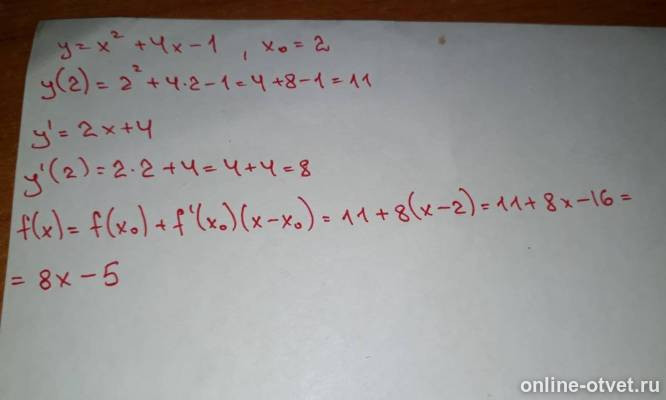 y = x² + 4x - 1 , x₀ = 2
y(2) = 2² + 4·2 - 1 = 4 + 8 - 1 = 11
y' = 2x + 4
y'(2) = 2·2 + 4 = 4 + 4 = 8
f(x) = f(x₀) + f'(x₀)(x - x₀) = 11 + 8(x - 2) = 11 + 8x - 16 =
= 8x - 5
online-otvet.ru